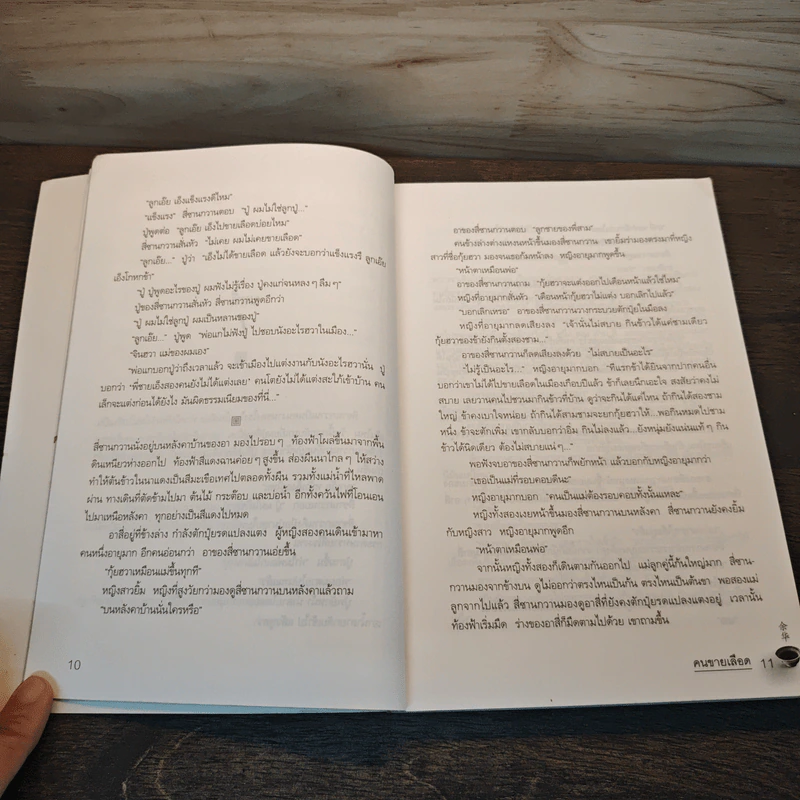 "ลูกเอ๊ย เอ็งแข็งแรงดีไหม"
"แข็งแรง" สี่ซานกวานตอบ "ปู่ ผมไม่ใช่ลูกปู่..."
ปู่พูดต่อ "ลูกเอ๊ย เอ็งไปขายเลือดบ่อยไหม"
สี่ซานกวานสั่นหัว "ไม่เคย ผมไม่เคยขายเลือด"
"ลูกเอ๊ย..." ปู่ว่า "เอ็งไม่ได้ขายเลือด แล้วยังจะบอกว่าแข็งแรงรึ ลูกเอ๊ย
เอ็งโกหกข้า"
"ปู่ ปู่พูดอะไรของปู่ ผมฟังไม่รู้เรื่อง ปู่คงแก่จนหลง ๆ ลืม ๆ"
ปู่ของสี่ซานกวานสั่นหัว สี่ซานกวานพูดอีกว่า
"ปู่ ผมไม่ใช่ลูกปู่ ผมเป็นหลานของปู่"
"ลูกเอ๊ย..." ปู่พูด "พ่อแกไม่ฟังปู่ ไปชอบนังอะไรฮวาในเมือง..."
"จินฮวา แม่ของผมเอง"
"พ่อแกบอกปู่ว่าถึงเวลาแล้ว จะเข้าเมืองไปแต่งงานกับนังอะไรฮวานั่น ปู่
บอกว่า "พี่ชายเอ็งสองคนยังไม่ได้แต่งเลย" คนโตยังไม่ได้แต่งสะใภ้เข้าบ้าน คน
เล็กจะแต่งก่อนได้ยังไง มันผิดธรรมเนียมของที่นี่..."
สี่ซานกวานนั่งอยู่บนหลังคาบ้านของอา มองไปรอบ ๆ ท้องฟ้าโผล่ขึ้นมาจากพื้น
ดินเหนียวห่างออกไป ท้องฟ้าสีแดงฉานค่อย ๆ สูงขึ้น ส่องผืนนาไกล ๆ ให้สว่าง
ทำให้ต้นข้าวในนาแดงเป็นสีมะเขือเทศไปตลอดทั้งผืน รวมทั้งแม่น้ำที่ไหลพาด
ผ่าน ทางเดินที่ตัดข้ามไปมา ต้นไม้ กระต๊อบ และบ่อน้ำ อีกทั้งควันไฟที่โอนเอน
ไปมาเหนือหลังคา ทุกอย่างเป็นสีแดงไปหมด
อาสี่อยู่ที่ข้างล่าง กำลังตักปุ๋ยรดแปลงแตง ผู้หญิงสองคนเดินเข้ามาหา
คนหนึ่งอายุมาก อีกคนอ่อนกว่า อาของสี่ซานกวานเอ่ยขึ้น
"กุ้ยฮวาเหมือนแม่ขึ้นทุกที"
หญิงสาวยิ้ม หญิงที่สูงวัยกว่ามองดูสี่ซานกวานบนหลังคาแล้วถาม
"บนหลังคาบ้านนั่นใครหรือ"
10
อาของสี่ซานกวานตอบ "ลูกชายของพี่สาม"
คนข้างล่างต่างแหงนหน้าขึ้นมองสี่ซานกวาน เขายิ้มร่ามองตรงมาที่หญิง
สาวที่ชื่อกุ้ยฮวา มองจนเธอก้มหน้าลง หญิงอายุมากพูดขึ้น
"หน้าตาเหมือนพ่อ"
อาของสี่ซานกวานถาม "กุ้ยฮวาจะแต่งออกไปเดือนหน้าแล้วใช่ไหม"
หญิงที่อายุมากสั่นหัว "เดือนหน้ากุ้ยฮวาไม่แต่ง บอกเลิกไปแล้ว"
"บอกเลิกเหรอ" อาของสี่ซานกวานวางกระบวยตักปุ๋ยในมือลง
หญิงที่อายุมากลดเสียงลง "เจ้านั่นไม่สบาย กินข้าวได้แค่ชามเดียว
กุ้ยฮวาของข้ายังกินตั้งสองชาม..."
อาของสี่ซานกวานก็ลดเสียงลงด้วย "ไม่สบายเป็นอะไร"
"ไม่รู้เป็นอะไร..." หญิงอายุมากบอก "ทีแรกข้าได้ยินจากปากคนอื่น
บอกว่าเขาไม่ได้ไปขายเลือดในเมืองเกือบปีแล้ว ข้าก็เลยนึกเอะใจ สงสัยว่าคงไม่
สบาย เลยวานคนไปชวนมากินข้าวที่บ้าน ดูว่าจะกินได้แค่ไหน ถ้ากินได้สองชาม
ใหญ่ ข้าคงเบาใจหน่อย ถ้ากินได้สามชามจะยกกุ้ยฮวาให้...พอกินหมดไปชาม
หนึ่ง ข้าจะตักเพิ่ม เขากลับบอกว่าอิ่ม กินไม่ลงแล้ว...ยังหนุ่มยังแน่นแท้ ๆ กิน
ข้าวได้นิดเดียว ต้องไม่สบายแน่ ๆ..."
พอฟังจบอาของสี่ซานกวานก็พยักหน้า แล้วบอกกับหญิงอายุมากว่า
"เธอเป็นแม่ที่รอบคอบดีนะ"
หญิงอายุมากบอก "คนเป็นแม่ต้องรอบคอบทั้งนั้นแหละ"
หญิงทั้งสองเงยหน้าขึ้นมองสี่ซานกวานบนหลังคา สี่ซานกวานยังคงยิ้ม
กับหญิงสาว หญิงอายุมากพูดอีก
"หน้าตาเหมือนพ่อ"
จากนั้นหญิงทั้งสองก็เดินตามกันออกไป แม่ลูกคู่นี้ก้นใหญ่มาก สี่ซาน-
กวานมองจากข้างบน ดูไม่ออกว่าตรงไหนเป็นก้น ตรงไหนเป็นต้นขา พอสองแม่
ลูกจากไปแล้ว สี่ซานกวานมองดูอาสี่ที่ยังคงตักปุ๋ยรดแปลงแตงอยู่ เวลานั้น
ท้องฟ้าเริ่มมืด ร่างของอาสี่ก็มืดตามไปด้วย เขาถามขึ้น
余华
คนขายเลือด 11